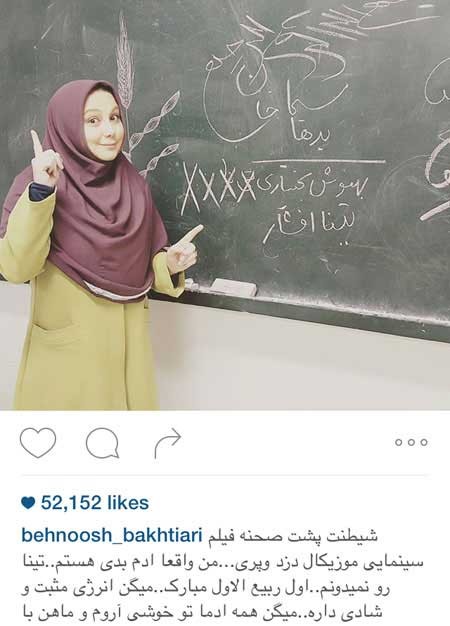 بدها
بهنوش بختیاری XXXX
تینا افشار
52,152 likes
behnoosh_bakhtiari شیطنت پشت صحنه فیلم
سینمایی موزیکال دزد وپری...من واقعا ادم بدی هستم..تینا
رو نمیدونم..اول ربیع الاول مبارک..میگن انرژی مثبت و
شادی داره..میگن همه ادما تو خوشی آروم و ماهن با